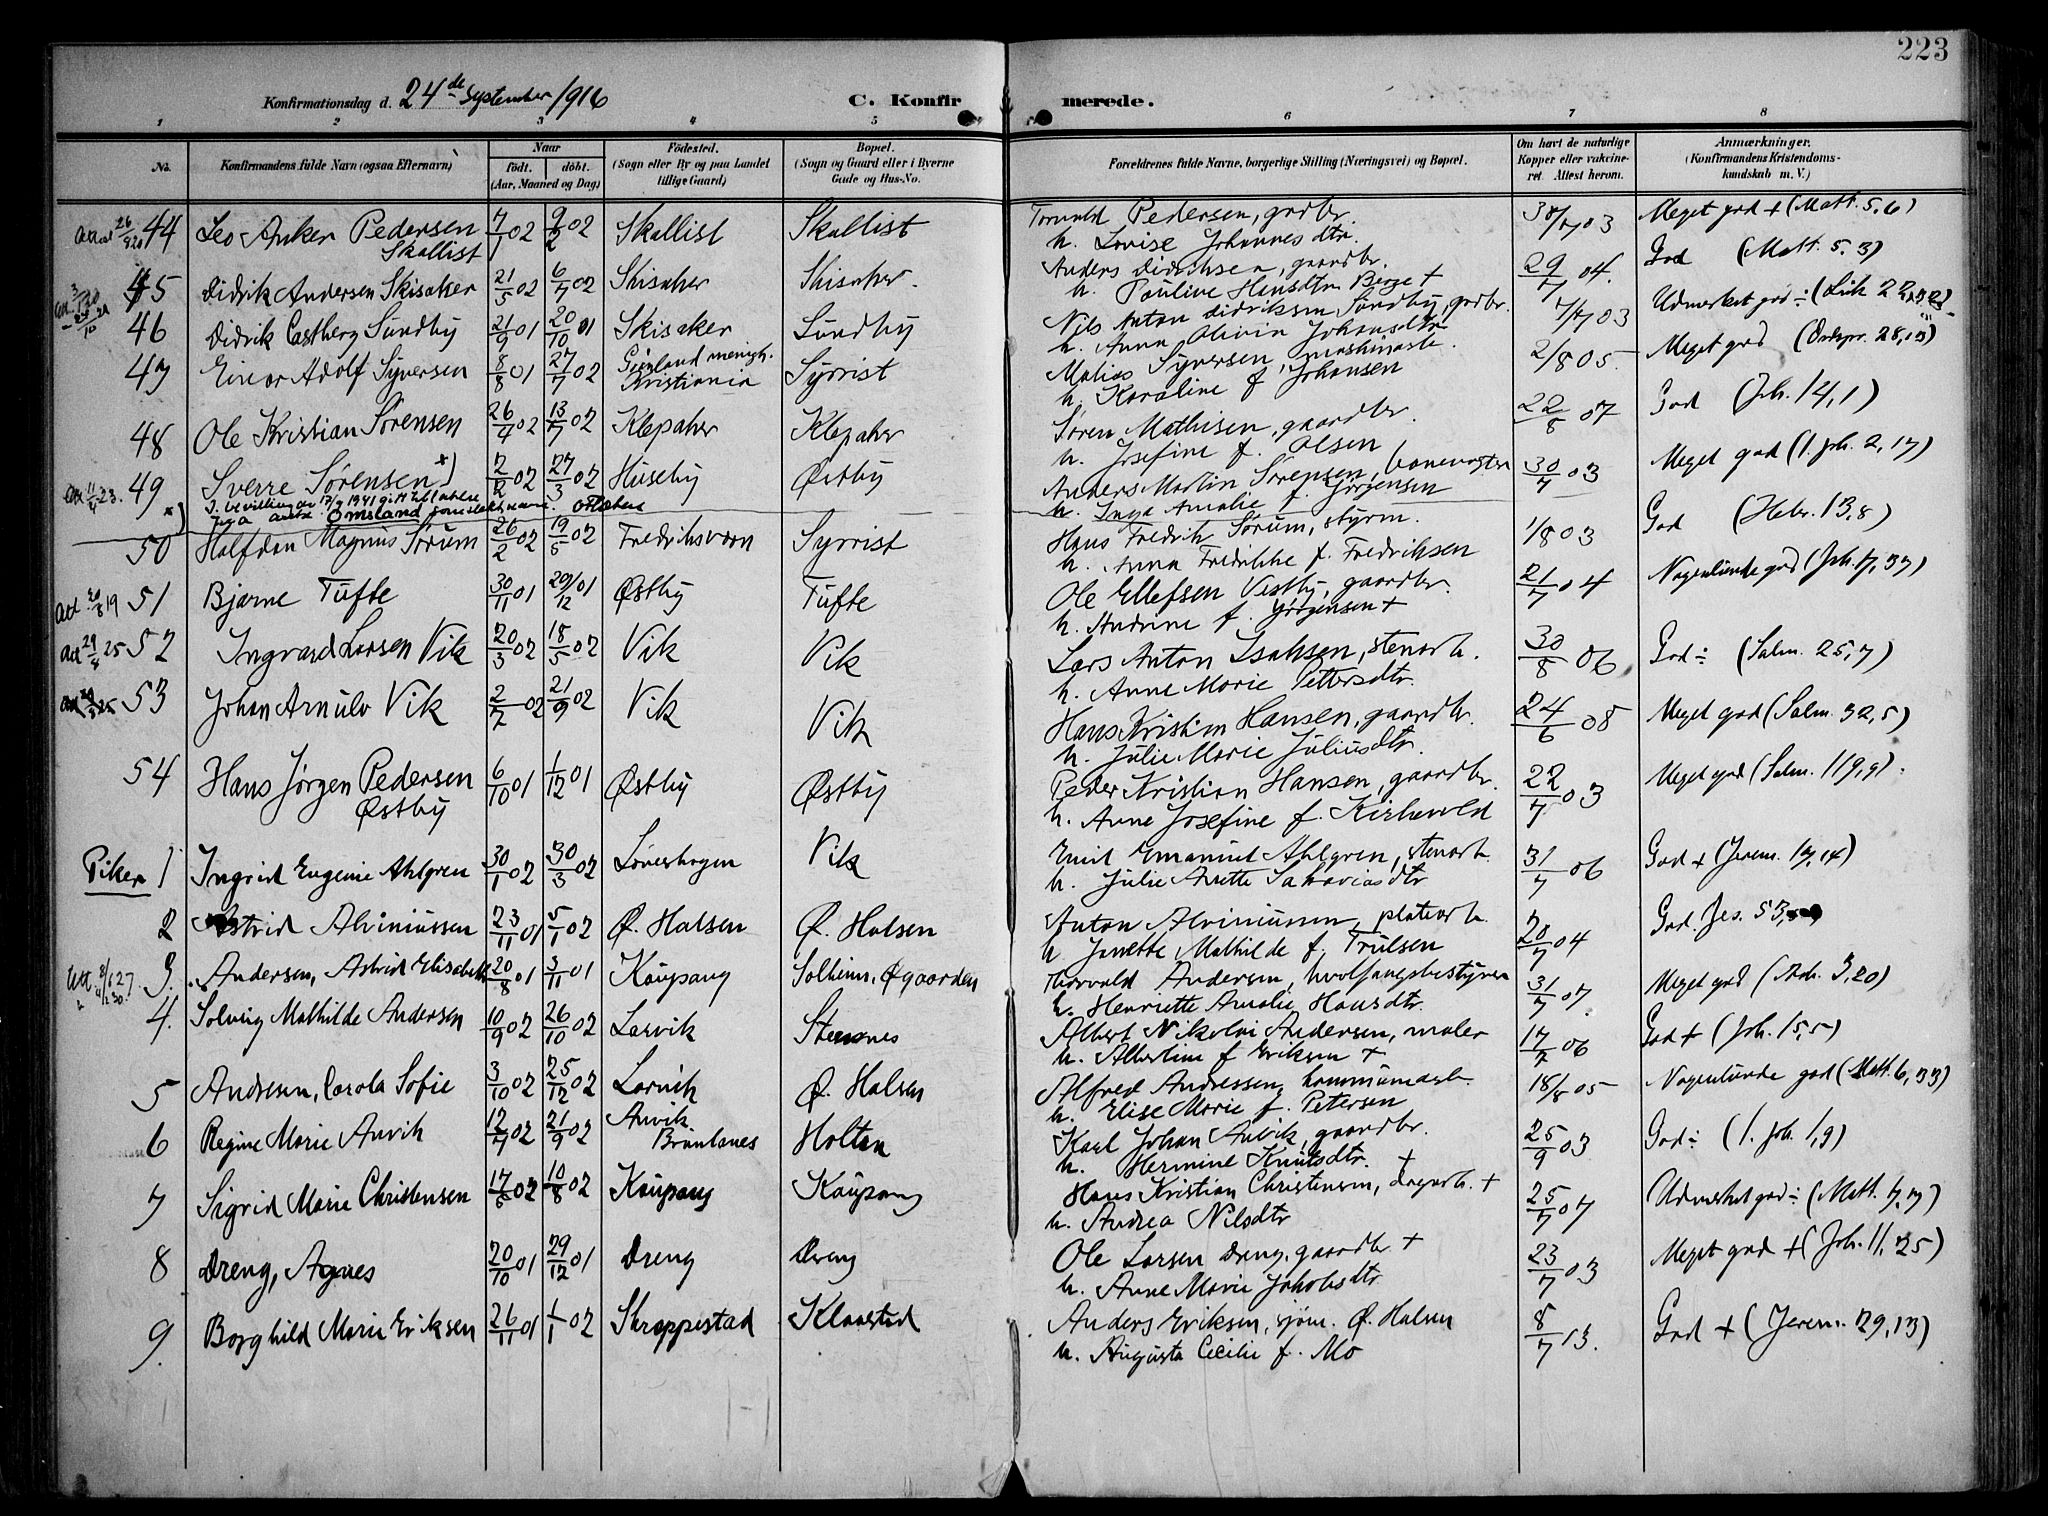 223
Konfirmationsdag d. 24de September 1916 C. Konfirmerede.
1 2 3 4 5 6 7 8
No. Konfirmandens fulde Navn (ogsaa Efternavn) Naar födt. döbt. (Aar, Maaned og Dag) Födested. (Sogn eller By og paa Landet tillige Gaard) Bopæl. (Sogn og Gaard eller i Byerne Gade og Hus-No. Forældrenes fulde Navne, borgerlige Stilling (Næringsvei) og Bopæl. Om havt de naturlige Kopper eller vakcineret. Attest herom. Anmærkninger. (Konfirmandens Kristendomskundskab m. V.)
44 Leo Anker Pedersen 7/1 02 9/2 02 Skallist Skallist Torvald Pedersen, gårdbr. 03 Meget god + (Matt. 5,6)
Skallist h. Lovise Johannesdtr.
45 Didrik Andersen Skisaker 21/5 02 6/7 02 Skisaker Skisaker. Anders Didriksen, gaardbr. 29/7 04. God (Matt. 5.3)
h. Pauline Hansdtr. Berge +
46 Didrik Castberg Sundby 21/9 01 20/10 01 Skisaker Sundby Nils Anton Didriksen Sundby, gdbr. 7/7 03 Udmerket god ÷ (Luk 22,
h. Anna Olivia Johansdtr
47 Einar Adolf Syversen 8/8 01 27/7 02 Grønland menigh. Kristiania Syrrist Matias Syversen, maskinarb. 2/8 05. Meget god (Ordspr. 28,13)
h. Karoline f Johansen
48 Ole Kristian Sørensen 26/4 02 13/7 02 Klepaker Klepaker Søren Mathisen, gaardbr. 22/8 07 God (Joh. 14,1)
h. Josefine f. Olsen
11/4 23. 49 Sverre Sørensen x) 2/2 02 27/3 02 Huseby Østby Anders Martin Sørensen, banevogter 30/7 03 Meget god (1. Joh. 2,17)
x) I. bevilling av 17/2 1941 Omsland h. Inga Amalie f. Jørgensen
50 Halfdan Magnus Sørum 26/2 02 19/5 02 Fredriksvern Syrrist Hans Fredrik Sørum, styrm. 1/8 03 God (Hebr. 13,8)
h. Anna Fredrikke f. Fredriksen
Att 20/8 19 51 Bjarne Tufte 30/11 01 29/12 01 Østby Tufte Ole Ellefsen Vestby, gaardbr. 21/7 04 Nogenlunde god (Joh. 7,37)
h. Andrine f. Jørgensen +
Att 29/8 25 52 Ingvard Larsen Vik 20/3 02 18/5 02 Vik Vik Lars Anton Isaksen, stenarb. 30/8 06 God ÷ (Salm. 25,7)
h. Anne Marie Pettersdtr.
53 Johan Arnulv Vik 2/7 02 21/9 02 Vik Vik Hans Kristian Hansen, gaardbr. 24/6 08 Meget god (Salm. 32,5)
h. Julie Marie Juliusdtr.
54 Hans Jørgen Pedersen 6/10 01 1/12 01 Østby Østby Peder Kristian Hansen, gaardbr. 22/7 03 Meget god (Salm. 119,9).
Østby h. Anne Josefine f. Kirkevold
Piker 1 Ingrid Eugenie Ahlgren 30/1 02 30/3 02 Løveskogen Vik Emil Emanuel Ahlgren, stenarb. 31/7 06 God + (Jerem. 17,14)
h. Julie Anette Sakariasdtr
2 Astrid Alviniussen 23/11 01 5/1 02 Ø. Halsen Ø. Halsen Anton Alviniussen, platearb. 20/7 04 God. Jes. 53,
h Janette Mathilde f. Trulsen
3. Andersen, Astrid Elisabeth 20/8 01 3/11 01 Kaupang Solheim, Øgaarden Thorvald Andersen, hvalfangstbestyrer 31/7 07. Meget god (Aab. 3,20)
h. Henriette Amalie Hansdtr.
4. Solveig Mathilde Andersen 10/9 02 26/10 02 Larvik Stensnes Albert Nikolai Andersen, maler 17/7 06 God + (Joh. 15,5)
h. Albertine f Eriksen +
5 Andresen, Carola Sofie 3/10 02 25/12 02 Larvik Ø. Halsen Alfred Andressen, kommunearb. 18/8 05 Nogenlunde god (Matt. 6,33)
h. Elise Marie f. Petersen
6 Regine Marie Anvik 12/7 02 21/9 02 Anvik Brunlanes Holtan Karl Johan Anvik, gaardbr. 25/9 03. God ÷ (1. Joh. 1,9)
h. Hermine Knutsdtr. +
7 Sigrid Marie Christensen 17/6 02 10/8 02 Kaupang Kaupang Hans Kristian Christensen, dagarb. + 25/7 07 Udmerket god ÷ (Matt. 7,7)
h. Andrea Nilsdtr
8 Dreng, Agnes 20/10 01 29/12 01 Dreng Dreng Ole Larsen Dreng, gaardbr + 23/7 03 Meget god + (Joh. 11,25)
h. Anne Marie Jakobsdtr
9. Borghild Marie Eriksen 26/11 01 1/1 02 Skreppestad Klaastad Anders Eriksen, sjøm. Ø. Halsen 8/7 13. God + (Jerem. 29,13)
h. Augusta Cecilie f. Mo